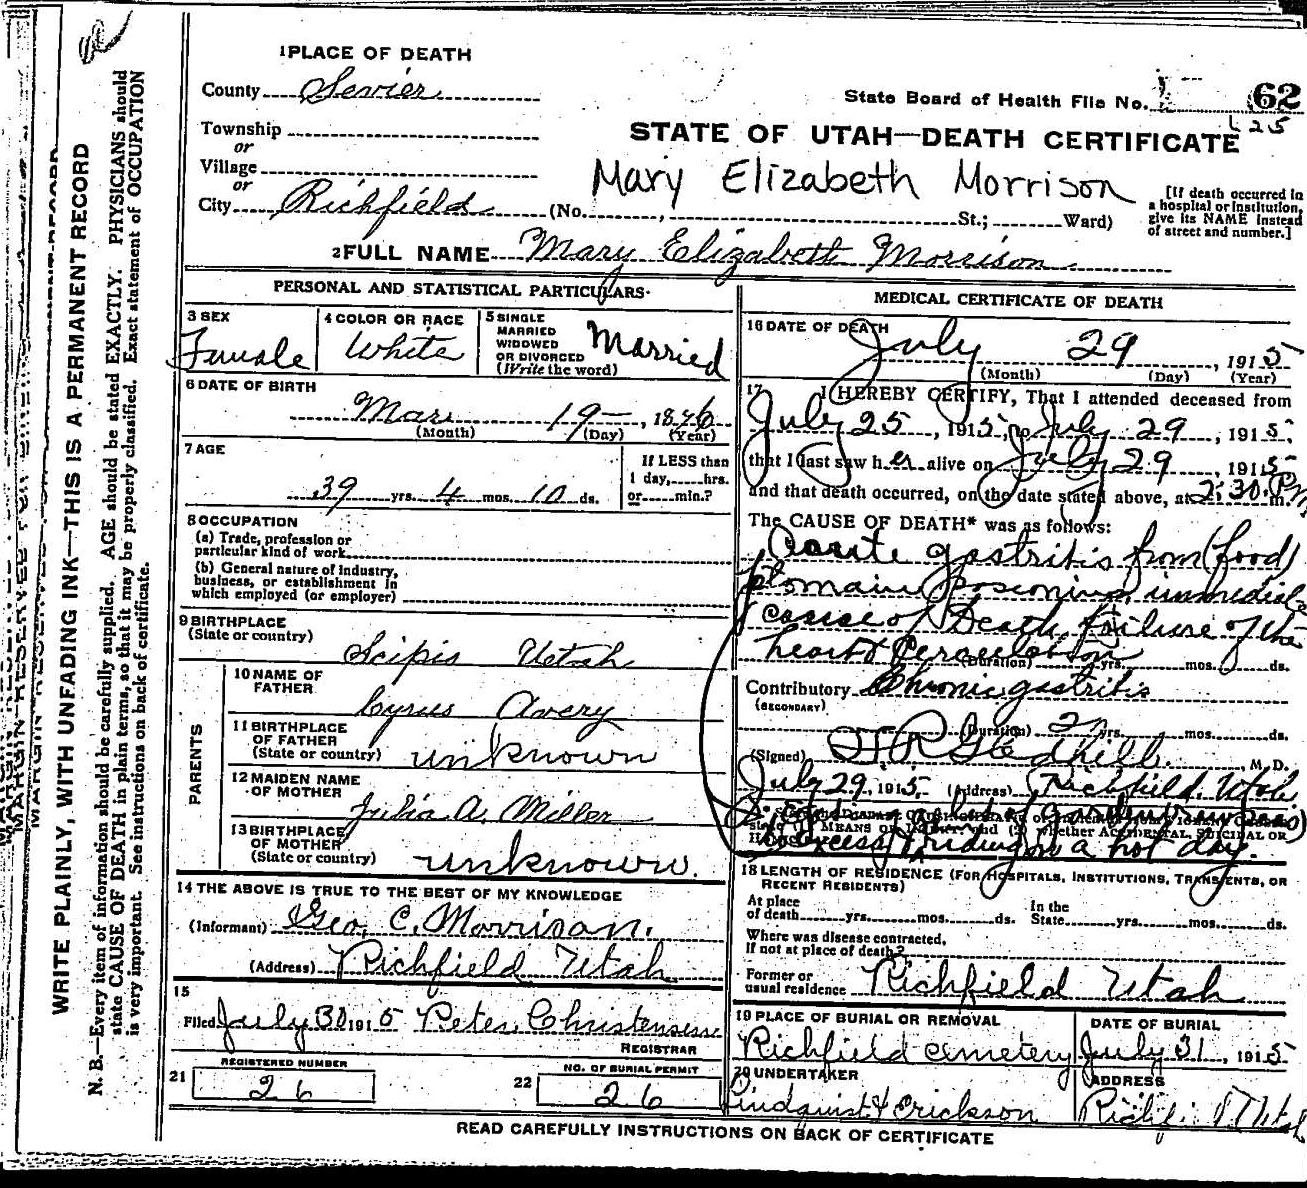 1 PLACE OF DEATH
County Sevier
Township
or
Village
or
City Richfield (No. , St.; Ward)
State Board of Health File No. 62
225
STATE OF UTAH—DEATH CERTIFICATE
Mary Elizabeth Morrison
[If death occurred in
a hospital or institution,
give its NAME instead
of street and number.]
2 FULL NAME Mary Elizabeth Morrison
PERSONAL AND STATISTICAL PARTICULARS
3 SEX
Female
4 COLOR OR RACE
White
5 SINGLE
MARRIED
WIDOWED
OR DIVORCED
(Write the word)
Married
6 DATE OF BIRTH
Mar 19 — , 1876
(Month) (Day) (Year)
7 AGE
39 yrs. 4 mos. 10 ds.
If LESS than
1 day, hrs.
or min.?
8 OCCUPATION
(a) Trade, profession or
particular kind of work
(b) General nature of industry,
business, or establishment in
which employed (or employer)
9 BIRTHPLACE
(State or country)
Scipio Utah
PARENTS
10 NAME OF
FATHER
Cyrus Avery
11 BIRTHPLACE
OF FATHER
(State or country) unknown
12 MAIDEN NAME
OF MOTHER
Julia A. Miller
13 BIRTHPLACE
OF MOTHER
(State or country) unknown.
14 THE ABOVE IS TRUE TO THE BEST OF MY KNOWLEDGE
(Informant) Geo. C. Morrison.
(Address) Richfield Utah
15
Filed July 30 1915 Peter Christensen
REGISTRAR
21 REGISTERED NUMBER
26
22 NO. OF BURIAL PERMIT
26
MEDICAL CERTIFICATE OF DEATH
16 DATE OF DEATH
July 29 , 1915
(Month) (Day) (Year)
17 I HEREBY CERTIFY, That I attended deceased from
July 25 , 1915, to July 29 , 1915,
that I last saw her alive on July 29 , 1915
and that death occurred, on the date stated above, at 2:30 P m.
The CAUSE OF DEATH* was as follows:
gastritis from (food)
ptomaine immediate
cause of Death, failure of the
heart &
(Duration) yrs. mos. ds.
Contributory Chronic gastritis
(SECONDARY)
(Duration) 2 yrs. mos. ds.
(Signed) Gledhill, M. D.
July 29, 1915. (Address) Richfield. Utah
MEANS OF and (2) whether ACCIDENTAL, SUICIDAL OR
excess & riding on a hot day.
18 LENGTH OF RESIDENCE (FOR HOSPITALS, INSTITUTIONS, TRANSIENTS, OR
RECENT RESIDENTS)
At place
of death yrs. mos. ds.
In the
State yrs. mos. ds.
Where was disease contracted,
If not at place of death?
Former or
usual residence Richfield Utah
19 PLACE OF BURIAL OR REMOVAL
Richfield cemetery
DATE OF BURIAL
July 31 , 1915
20 UNDERTAKER
Lindquist & Erickson
ADDRESS
Utah
READ CAREFULLY INSTRUCTIONS ON BACK OF CERTIFICATE
WRITE PLAINLY, WITH UNFADING INK—THIS IS A PERMANENT RECORD
N. B.—Every item of information should be carefully supplied. AGE should be stated EXACTLY. PHYSICIANS should
state CAUSE OF DEATH in plain terms, so that it may be properly classified. Exact statement of OCCUPATION
is very important. See instructions on back of certificate.